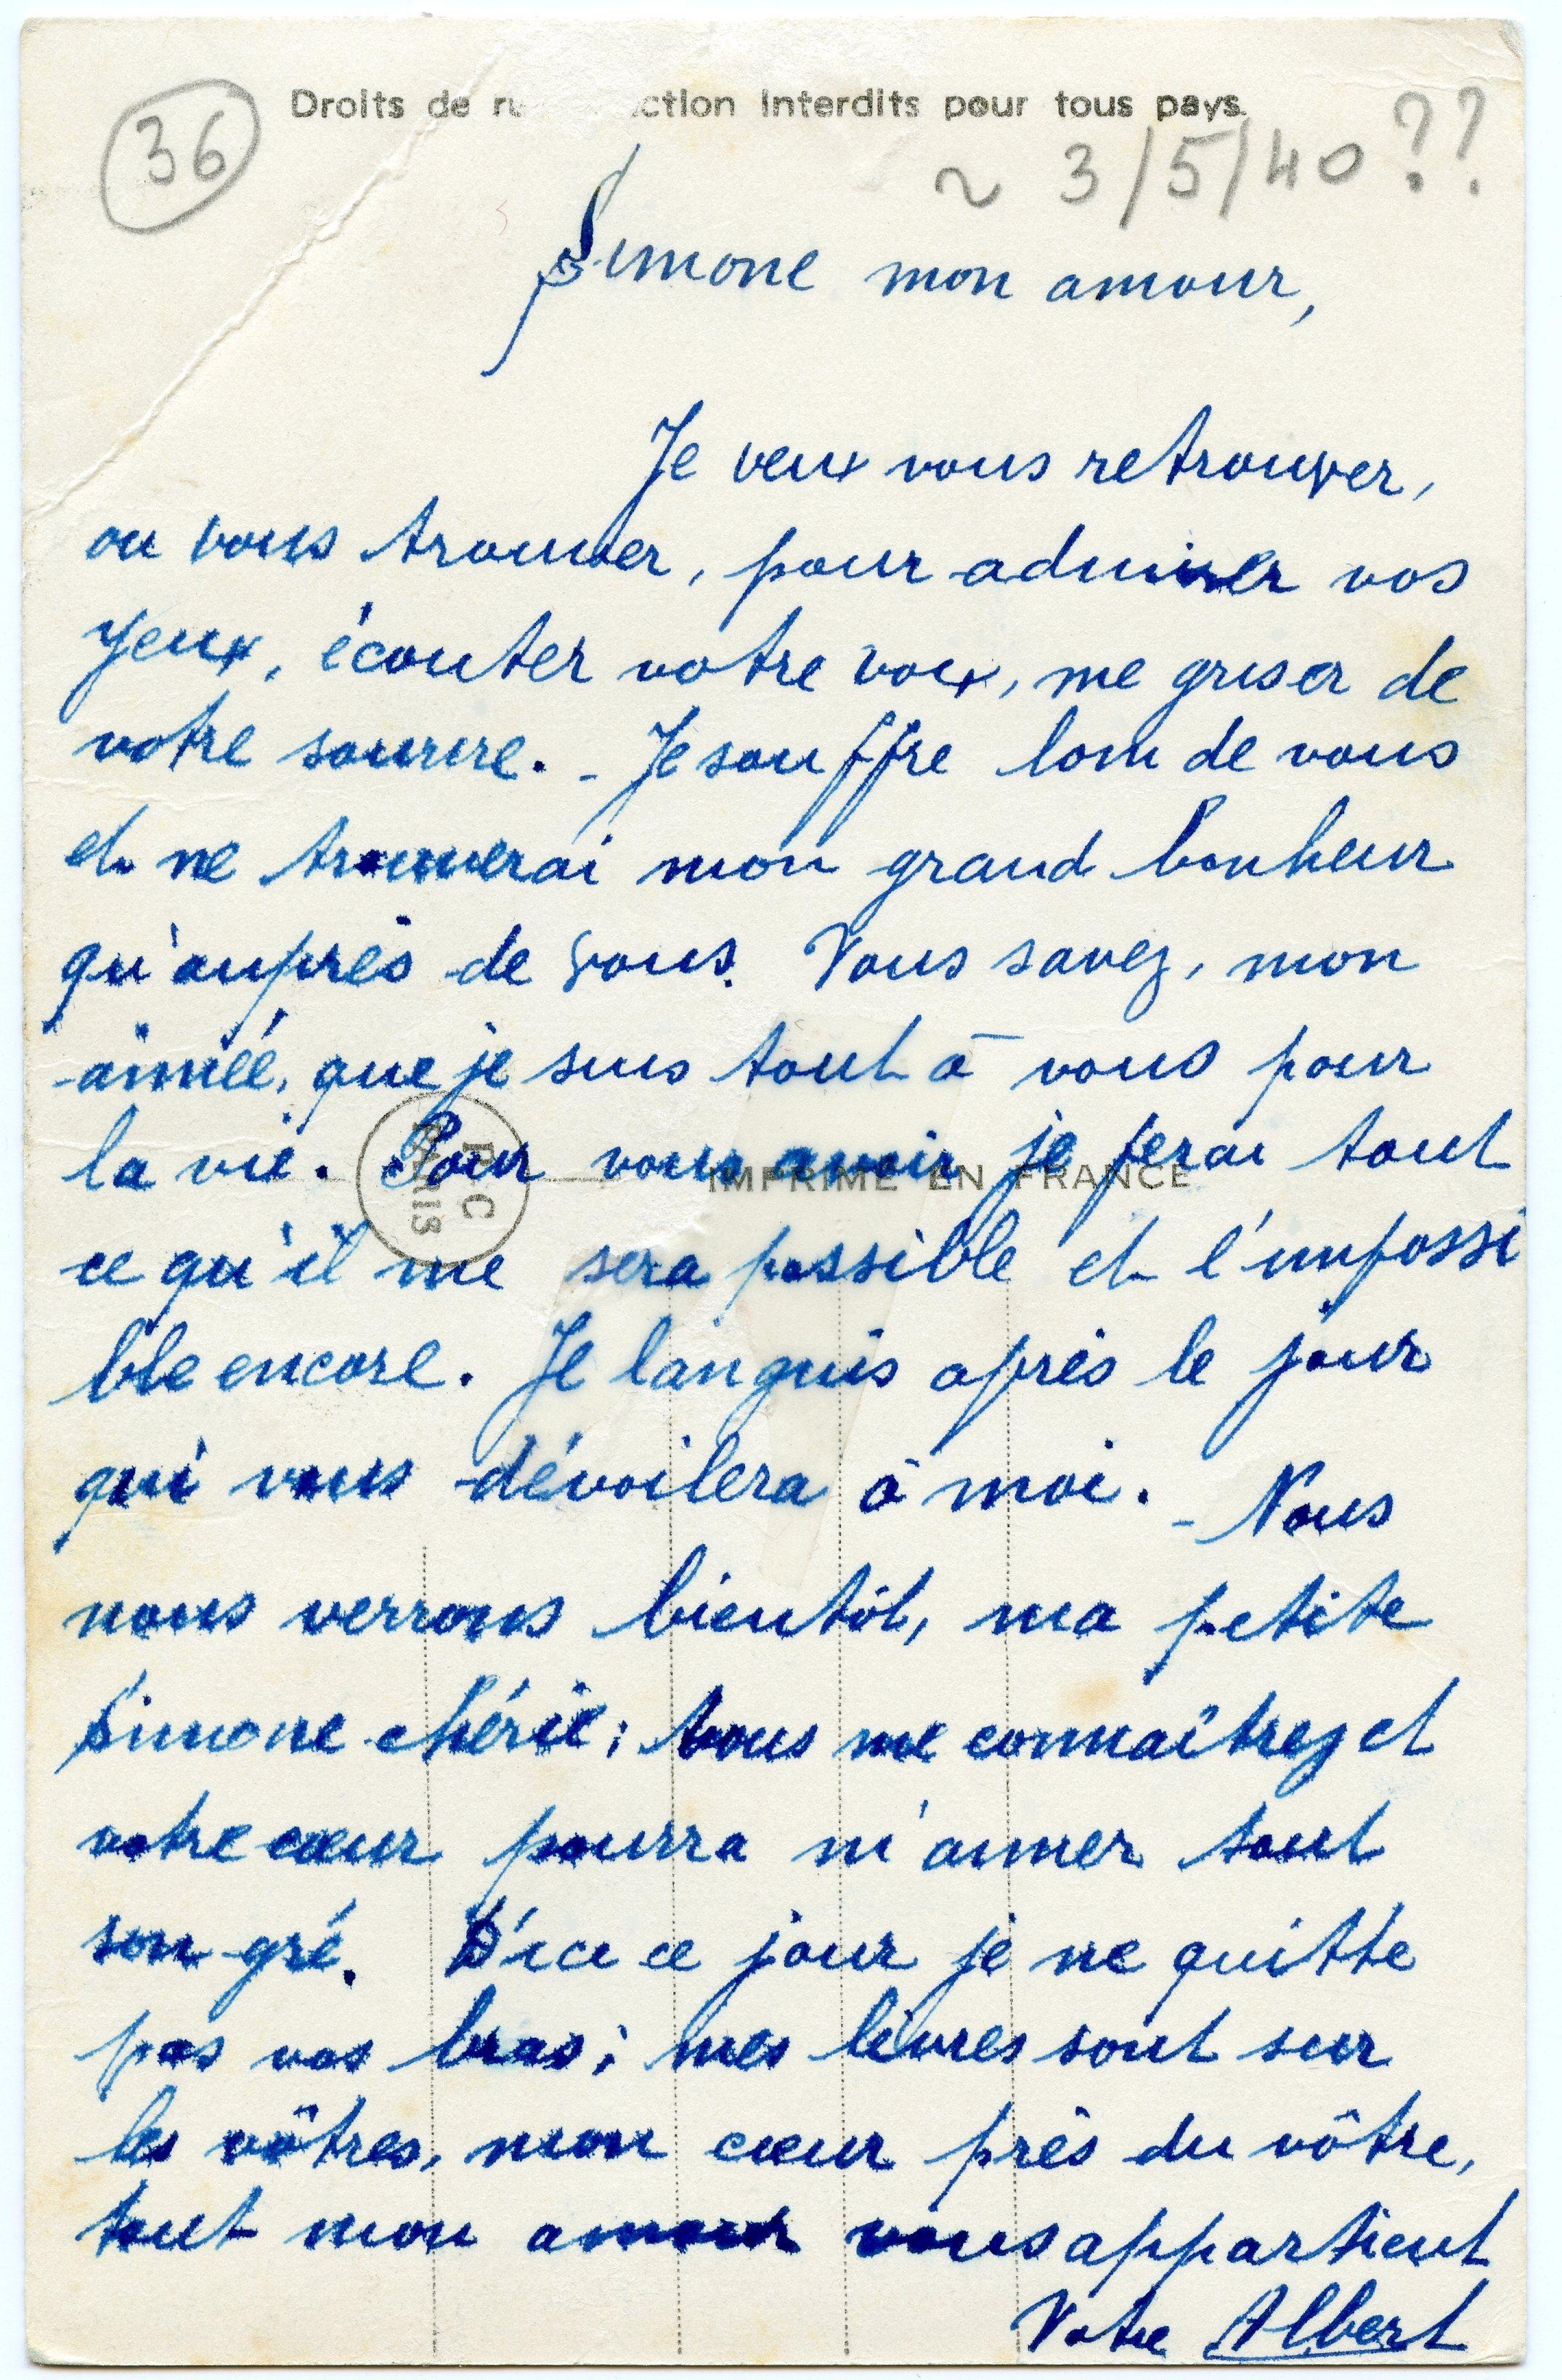 36
Droits de r ction interdits pour tous pays.
~ 3/5/40 ??
Simone mon amour,
Je veux vous retrouver,
ou vous trouver, pour admirer vos
yeux, écouter votre voix, me griser de
votre sourire. - Je souffre loin de vous
et ne trouverai mon grand bonheur
qu'auprès de vous. Vous savez, mon
aimée, que je suis tout à vous pour
la vie. Pour vous avoir je ferai tout
IMPRIMÉ EN FRANCE
PARIS
ce qu'il me sera possible et l'impossi
ble encore. Je languis après le jour
qui vous dévoilera à moi. - Nous
nous verrons bientôt, ma petite
Simone chérie; vous me connaîtrez et
votre cœur pourra m'aimer tout
son gré. D'ici ce jour je ne quitte
pas vos bras; mes lèvres sont sur
les vôtres, mon cœur près du vôtre,
tout mon amour vous appartient
Votre Albert